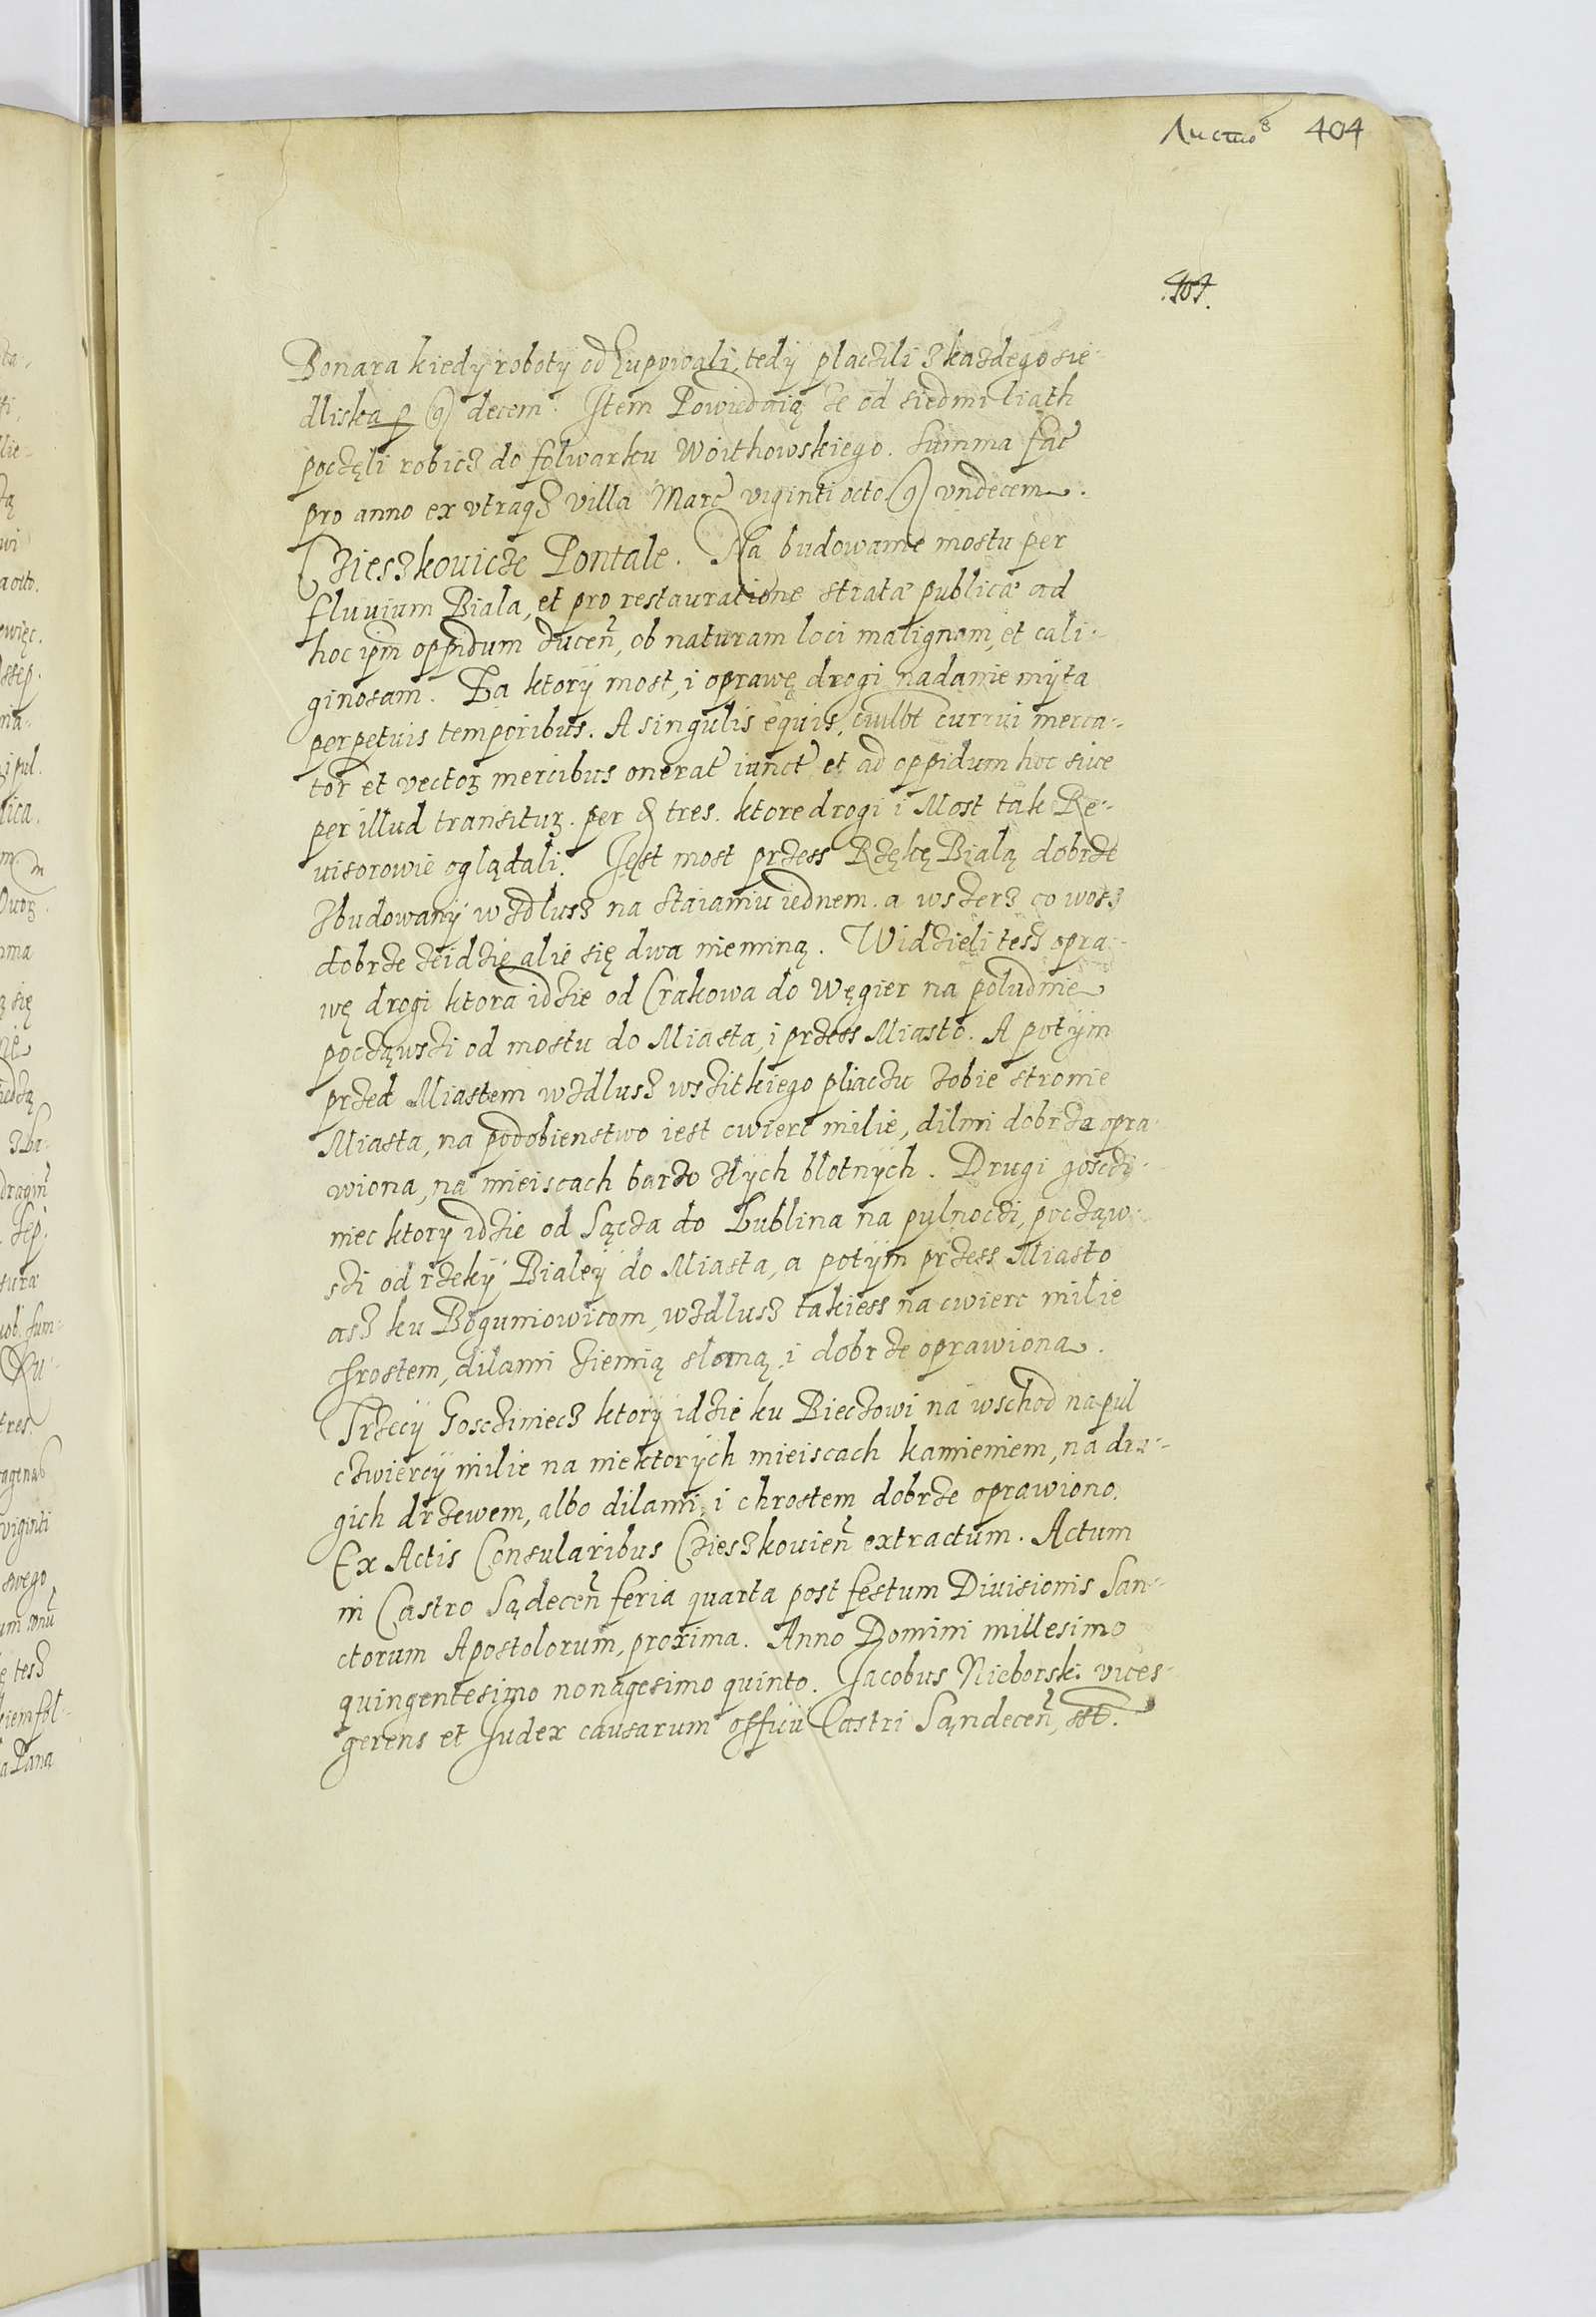 Листов 404
Bonara kiedÿ robotÿ od Zupÿ iogli, tedÿ placzili z kazdego sie-
dliska p gʳ decem. Item Powiedaią ze od siedmi liath
poczęli robicz do folwarku Woithowskiego. Summa fac̃
pro anno ex vtraqз villa Marc̃ viginti octo gʳ vndecem.
Czieszkouicze Pontale. Na budowanie mostu per
fluuium Biala, et pro restauratione stratæ publicæ ad
hoc ipm̃ oppidum ducen̄, ob naturam loci malignam, et cali-
ginosam. Za ktorÿ most, i oprawę drogi nadanie mÿta
perpetuis temporibus. A singulis equis, cuilbt currui merca-
tor et vectoꝝ mercibus onerat̃ iunct̃ et ad oppidum hoc siue
per illud transituꝝ. per tres. ktore drogi i Most tak Re-
uisorowie oglądali. Jest most przess Rzękę Bialą dobrze
zbudowanÿ wzdlusz na staianiu iednem. a wszerz co wosz
dobrze zeidzie alie się dwa nieminą. Widzieli tesz opra-
wę drogi ktora idzie od Crakowa do Węgier na poludnie
począwszi od mostu do Miasta, i przess Miasto. A potÿm
przed Miastem wzdlusz wszitkiego pliaczu zobie stronie
Miasta, na podobienstwo iest cwierc milie, dilmi dobrza opra-
wiona, na mieiscach barzo złÿch blotnÿch. Drugi goscży-
niec ktorÿ idzie od Sącza do Lublina na pulnoczi, począw-
szi od rzekÿ Bialeÿ do Miasta, a potÿm przess Miasto
asz ku Boguniowicom, wzdlusz takiess na cwierc milie
chrostem, dilami ziemią slomą, i dobrze oprawiona.
Trzecÿ Goscziniecz ktorÿ idzie ku Bieczowi na wschod na pul
czwiercÿ milie na niektorÿch mieiscach kamieniem, na dru-
gich drzewem, albo dilami, i chrostem dobrze oprawiono.
Ex Actis Consularibus Czieszkouien̄ extractum. Actum
in Castro Sądecen̄ feria quarta post festum Diuisionis San-
ctorum Apostolorum, proxima. Anno Domini millesimo
quingentesimo nonagesimo quinto. Jacobus Nieborski vices-
gerens et Judex causarum officii Castri Sąndecen̄, sst.